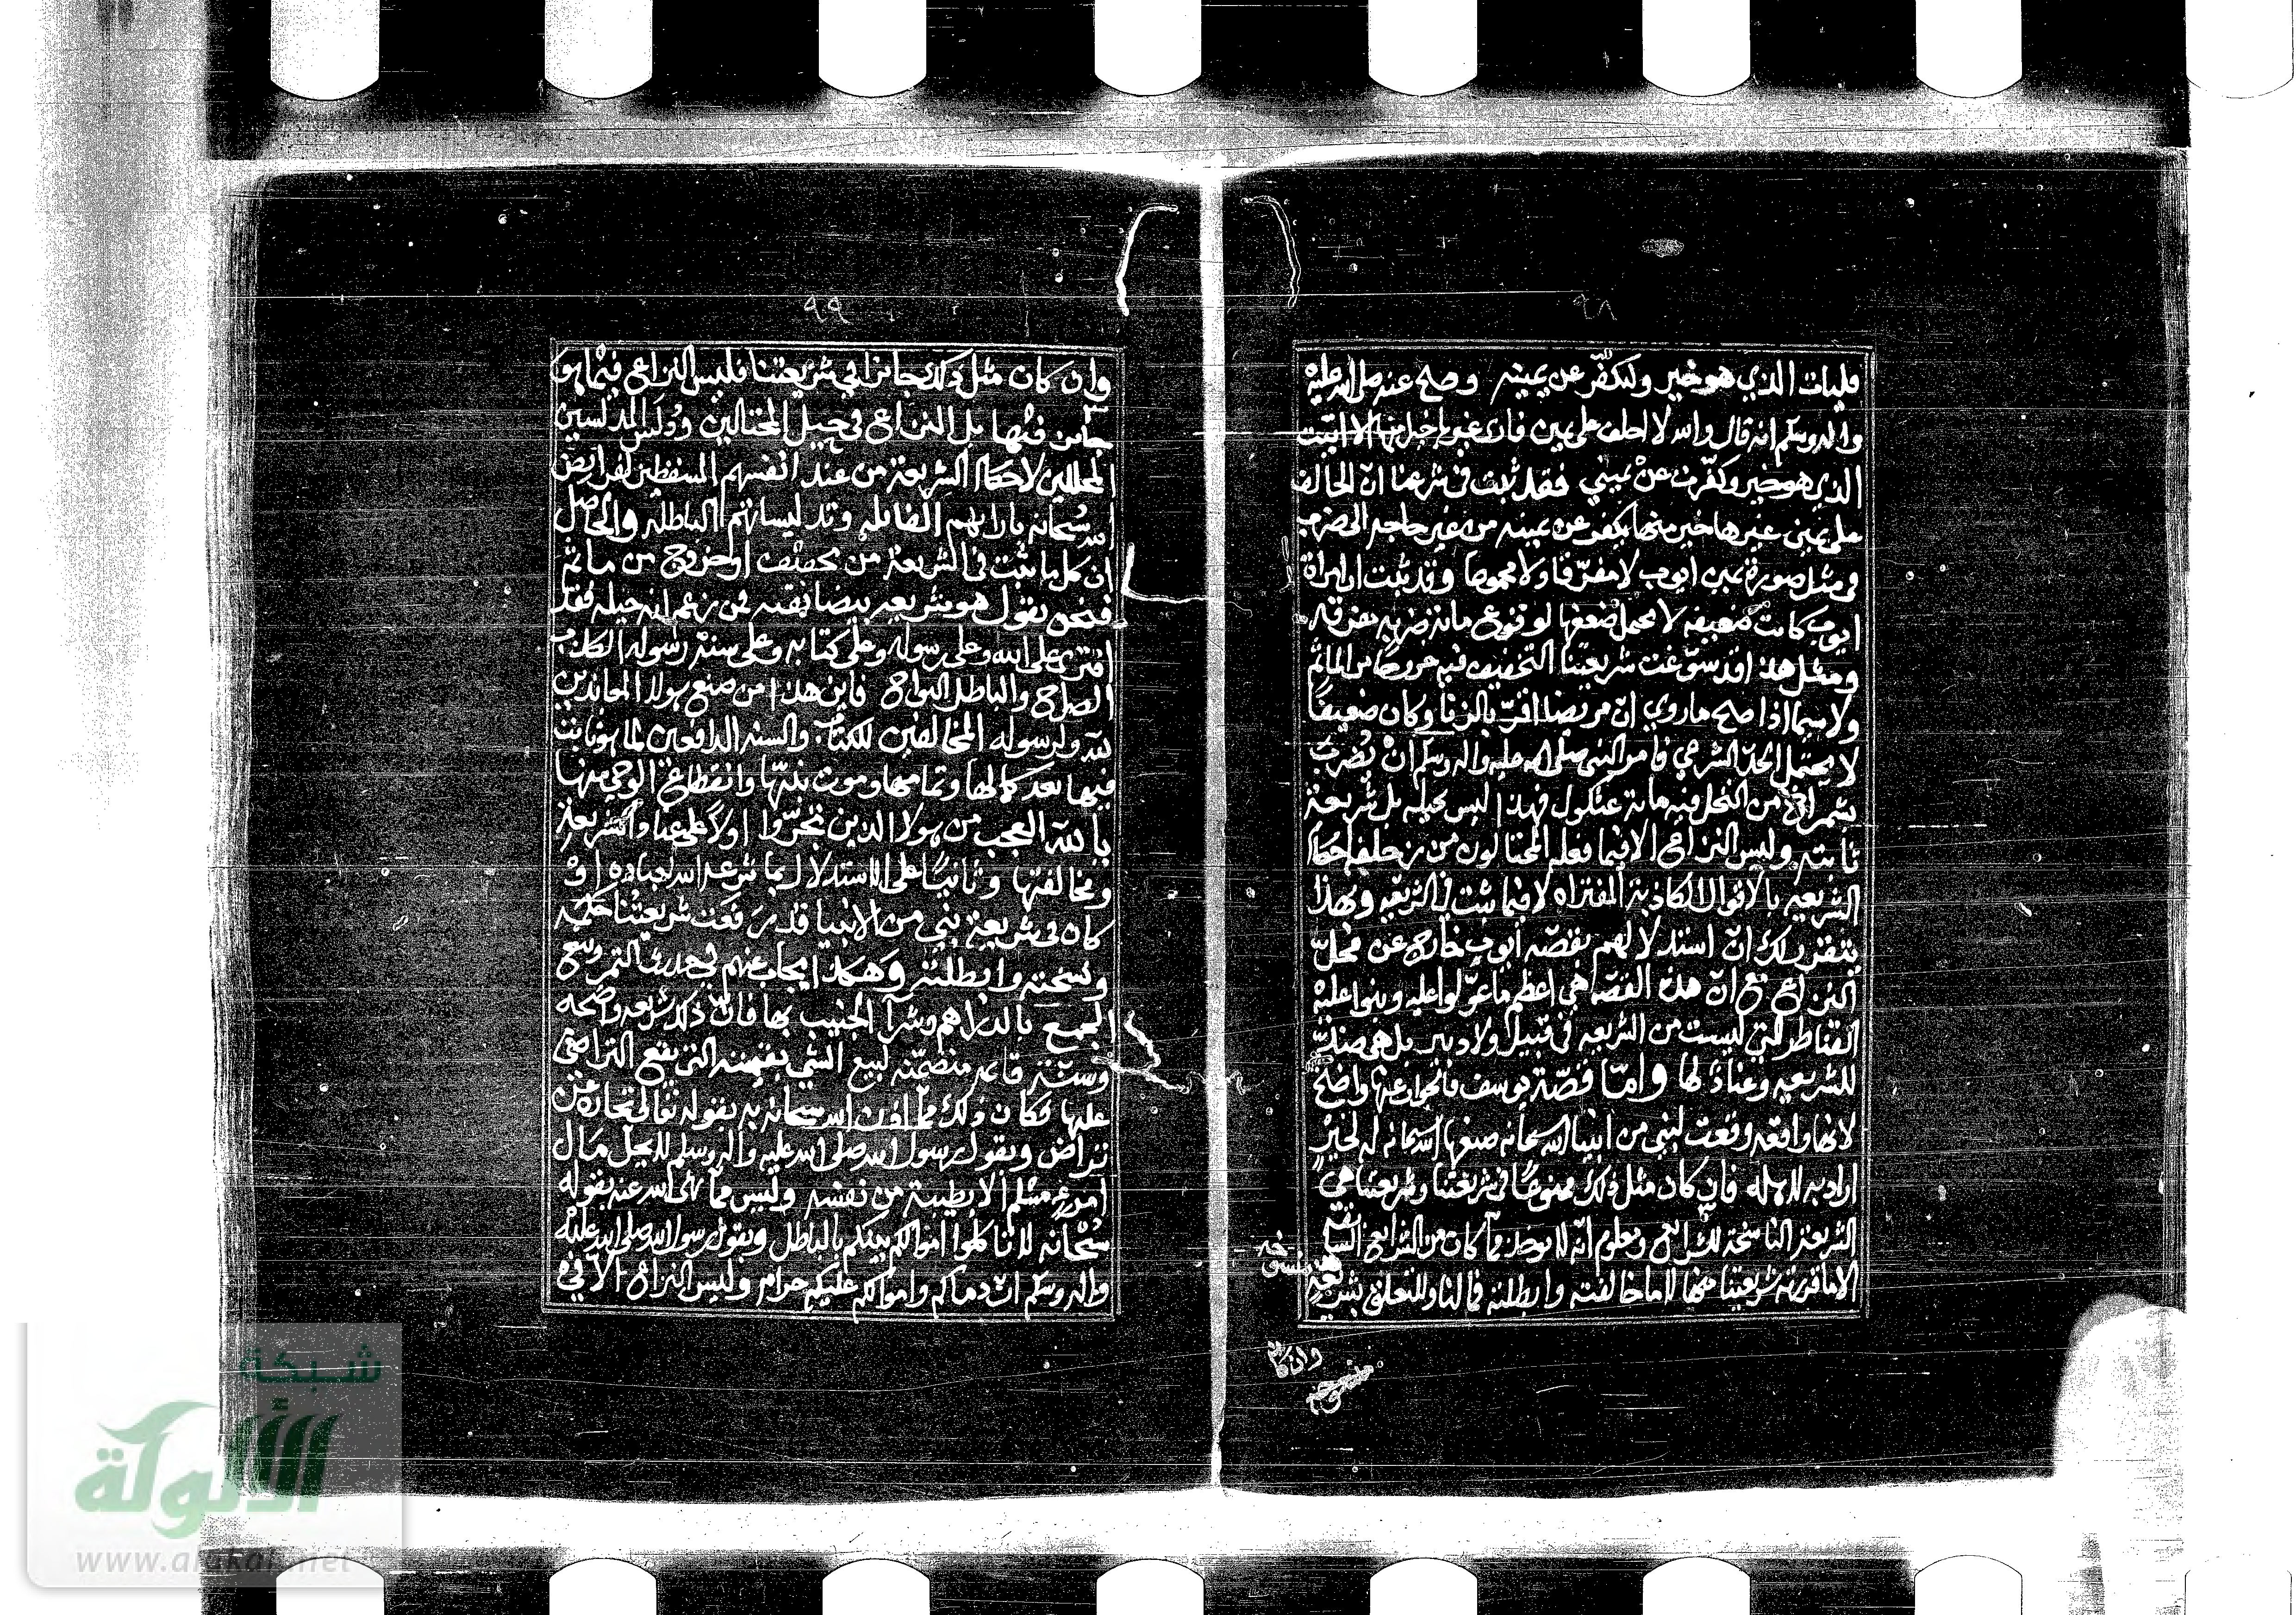 ٩٨
فليات الذي هو خير وليكفر عن يمينه وصح عنه صلى الله عليه
واله وسلم انه قال والله لا احلف على يمين فارى غيرها خيرا منها الا اتيت
الذي هو خير وكفرت عن يميني فقد ثبت في شرعنا ان الحالف
على يمين غيرها خير منها يكفر عن يمينه من غير حاجه الى ضرب
في مثل صورة يمين ايوب لا مفرقا ولا مجموعا وقد ثبت ان امراة
ايوب كانت ضعيفه لا يحتمل ضعفها لوقوع مائة ضربه مفرقه
ومثل هذا قد سوغت شريعتنا التخفيف فيه خروجا من الماثم
ولا سيما اذا صح ما روي ان مريضا اقر بالزنا وكان ضعيفا
لا يحتمل الحد الشرعي فامر النبي صلى الله عليه واله وسلم ان يضرب
بشمراخ من النخل فيه مائة عثكول فهذا ليس بحيله بل شريعة
ثابته وليس النزاع الا فيما فعله المحتالون من احكام
الشريعه بالاقوال الكاذبة المفتراه لا فيما ثبت في الشريعه وبهذا
يتقرر لك ان استدلالهم بقصه ايوب خارج عن محل
النزاع مع ان هذه القصه هي اعظم ما عولوا عليه وبنوا عليه
القناطر التي ليست من الشريعه في قبيل ولا دبير بل هي ضد
للشريعه وعناد لها واما قصة يوسف فالجواب عنها واضح
لانها واقعه وقعت لنبي من انبيا الله سبحانه صنعها الله سبحانه له لخير
اراد به لاهله فان كان مثل ذلك ممنوعا في شريعتنا وشريعتنا هي
الشريعة الناسخة للشرايع ومعلوم انه لا يوخذ مما كان من الشرايع السابقه
الا ما قررته شريعتنا منها لا ما خالفته وابطلته فما لنا وللتعلق بشريعة
منسوخه
وان كان
منسوخه
٩٩
وان كان مثل ذلك جائزا في شريعتنا فليس النزاع فيما هو
جائز فيها بل النزاع في حيل المحتالين ودلس المدلسين
المحللين لاحكام الشريعة من عند انفسهم المسقطين لفرايض
الله سبحانه بارايهم الفائله وتدليساتهم الباطله والحاصل
ان كل ما ثبت في الشريعة من تخفيف او خروج من ماثم
فنحن نقول هو شريعه بيضا نقيه فمن زعم انه حيله فقد
افترى على الله وعلى رسوله وعلى كتابه وعلى سنة رسوله الكذب
الصراح والباطل البواح فاين هذا من صنع هولا المعاندين
لله ولرسوله المخالفين للكتاب والسنه الدافعين لما هو ثابت
فيها بعد كمالها وتمامها وموت نبيها وانقطاع الوحي منها
يا لله العجب من هولا الذين تجروا اولا على عناد الشريعة
ومخالفتها وثانيا على الاستدلال بما شرعه الله لعباده او
كان في شريعة نبي من الانبيا قد رفعت شريعتنا حكمه
ونسخته وابطلته وهكذا يجاب عنهم في حديث التمر وبيع
الجميع بالدراهم وشرآ الجنيب بها فان ذلك شريعه واضحه
وسنة قائمه متضمنه لبيع الشي بقيمته التي يقع التراضي
عليها فكان ذلك مما اذن الله سبحانه به بقوله تعالى تجارة عن
تراض وبقول رسول الله صلى الله عليه واله وسلم لا يحل مال
امرء مسلم الا بطيبة من نفسه وليس مما نهى الله عنه بقوله
سبحانه لا تاكلوا اموالكم بينكم بالباطل وبقول رسول الله صلى الله عليه
واله وسلم ان دماكم واموالكم عليكم حرام وليس النزاع الا في
شبكة
الألوكة
www.alukah.net